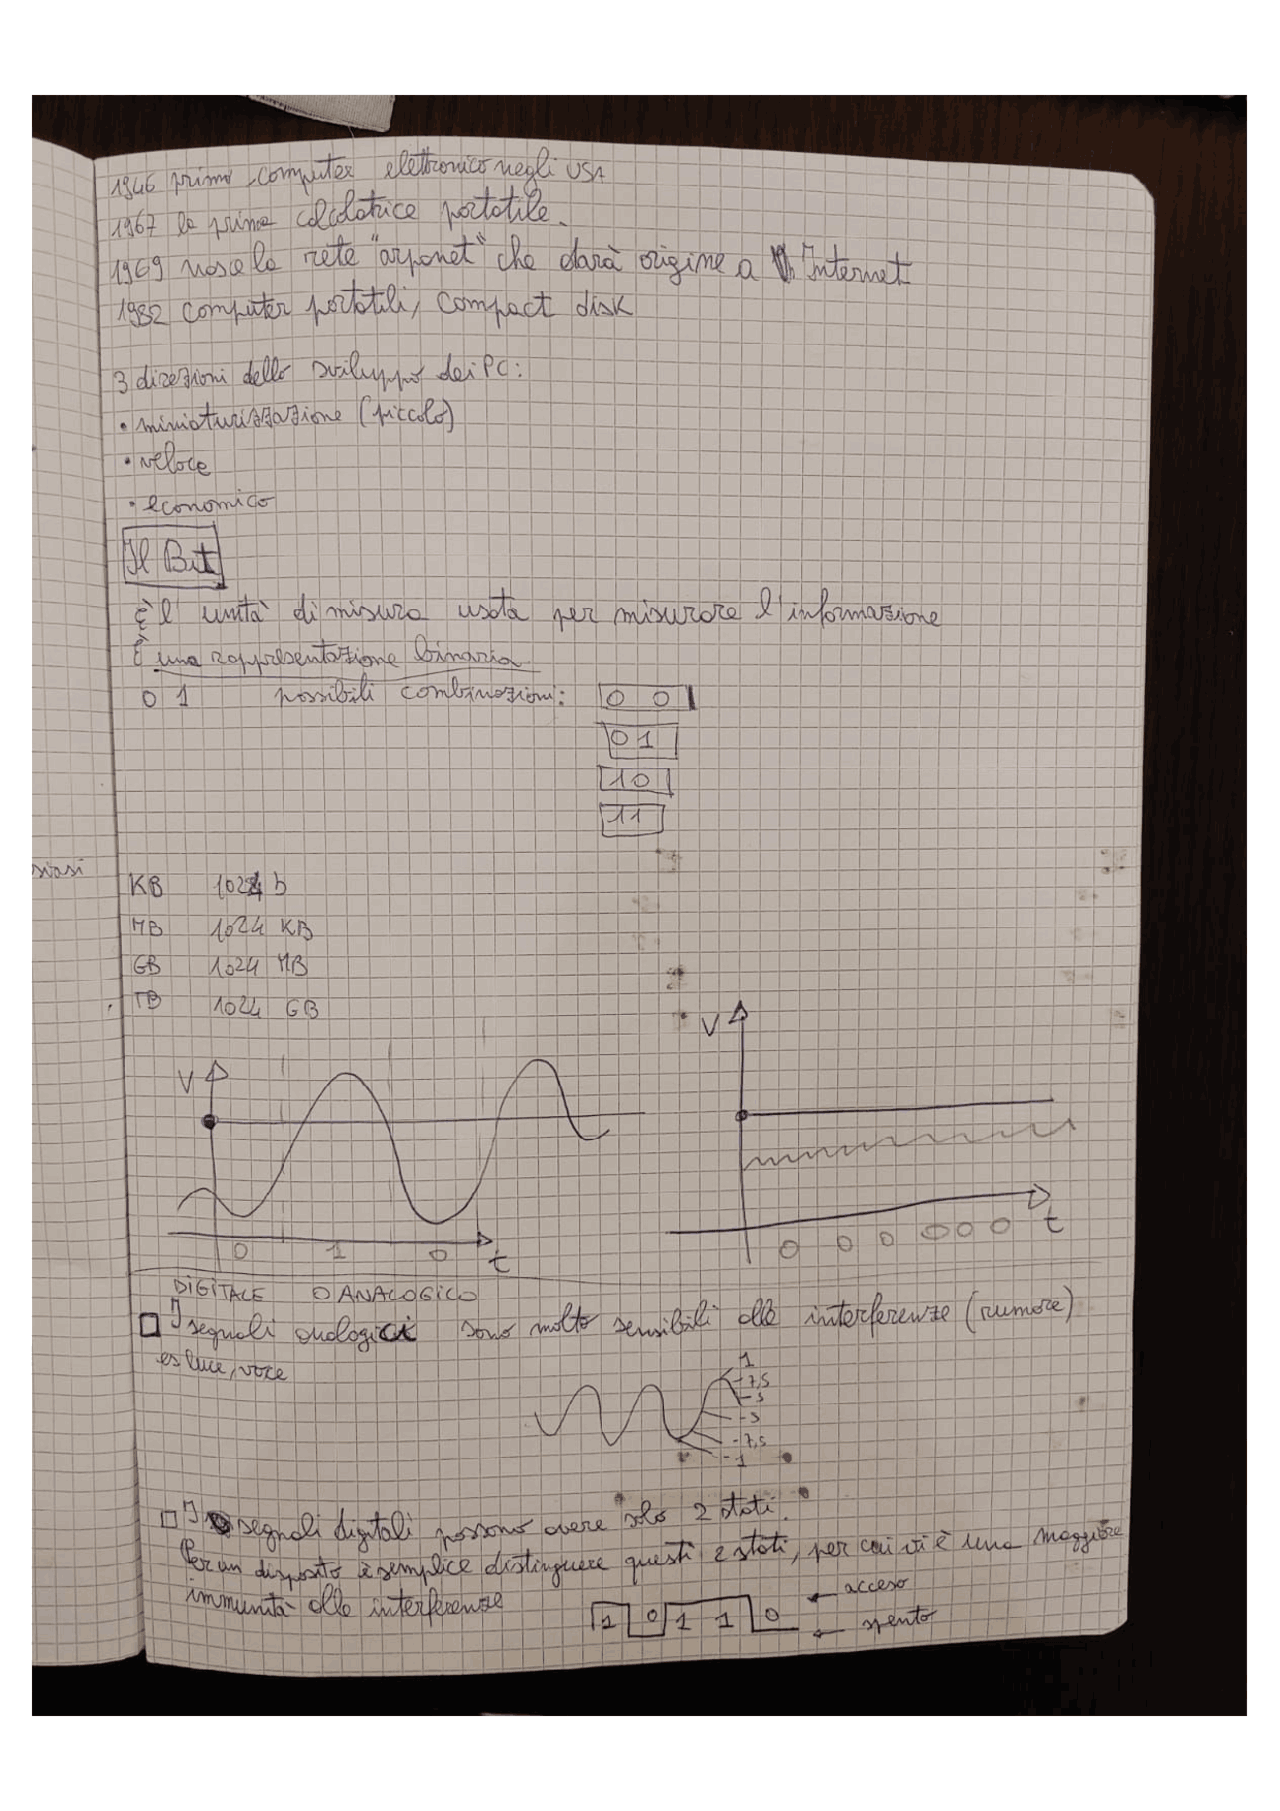 1946 primo computer elettronico negli USA
1967 la prima calcolatrice portatile
1969 nasce la rete "arpanet" che darà origine a Internet
1982 computer portatili, compact disk
3 direzioni dello sviluppo dei PC:
• miniaturizzazione (piccolo)
• veloce
• economico
Il Bit
È l'unità di misura usata per misurare l'informazione
È una rappresentazione binaria
0 1 possibili combinazioni: 0 0
01
10
11
siasi
KB 1024 b
MB 1024 KB
GB 1024 MB
TB 1024 GB
V
V
0 1 0 t
0 0 0 0 0 0 t
DIGITALE O ANALOGICO
I segnali analogici sono molto sensibili alle interferenze (rumore)
es luce, voce
1
7,5
5
-5
-7,5
-1
I segnali digitali possono avere solo 2 stati.
Per un disposito è semplice distinguere questi 2 stati, per cui vi è una maggiore
immunità alle interferenze
acceso
1 0 1 1 0
spento